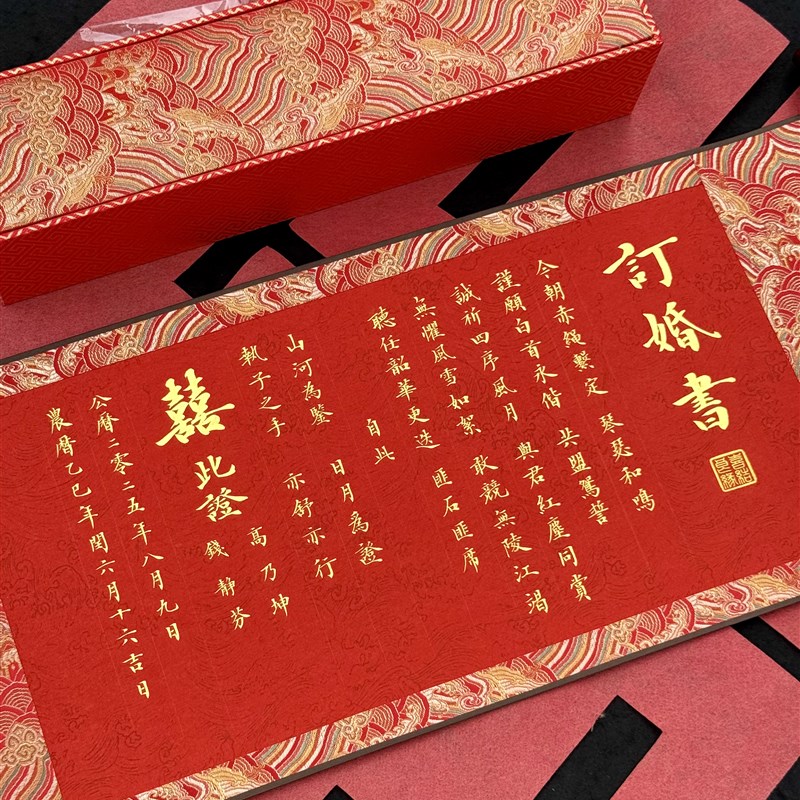 訂婚書
喜結良緣
今朝赤繩繫定 琴瑟和鳴
謹願白首永偕 共盟鴛誓
誠祈四序風月 與君紅塵同賞
無懼風雪如絮 敢競無陵江竭
聽任韶華更迭 匪石匪席
自此
山河為鑒 日月為證
執子之手 亦舒亦行
囍此證
高乃坤
錢靜芬
公曆二零二五年八月九日
農曆乙巳年閏六月十六吉日